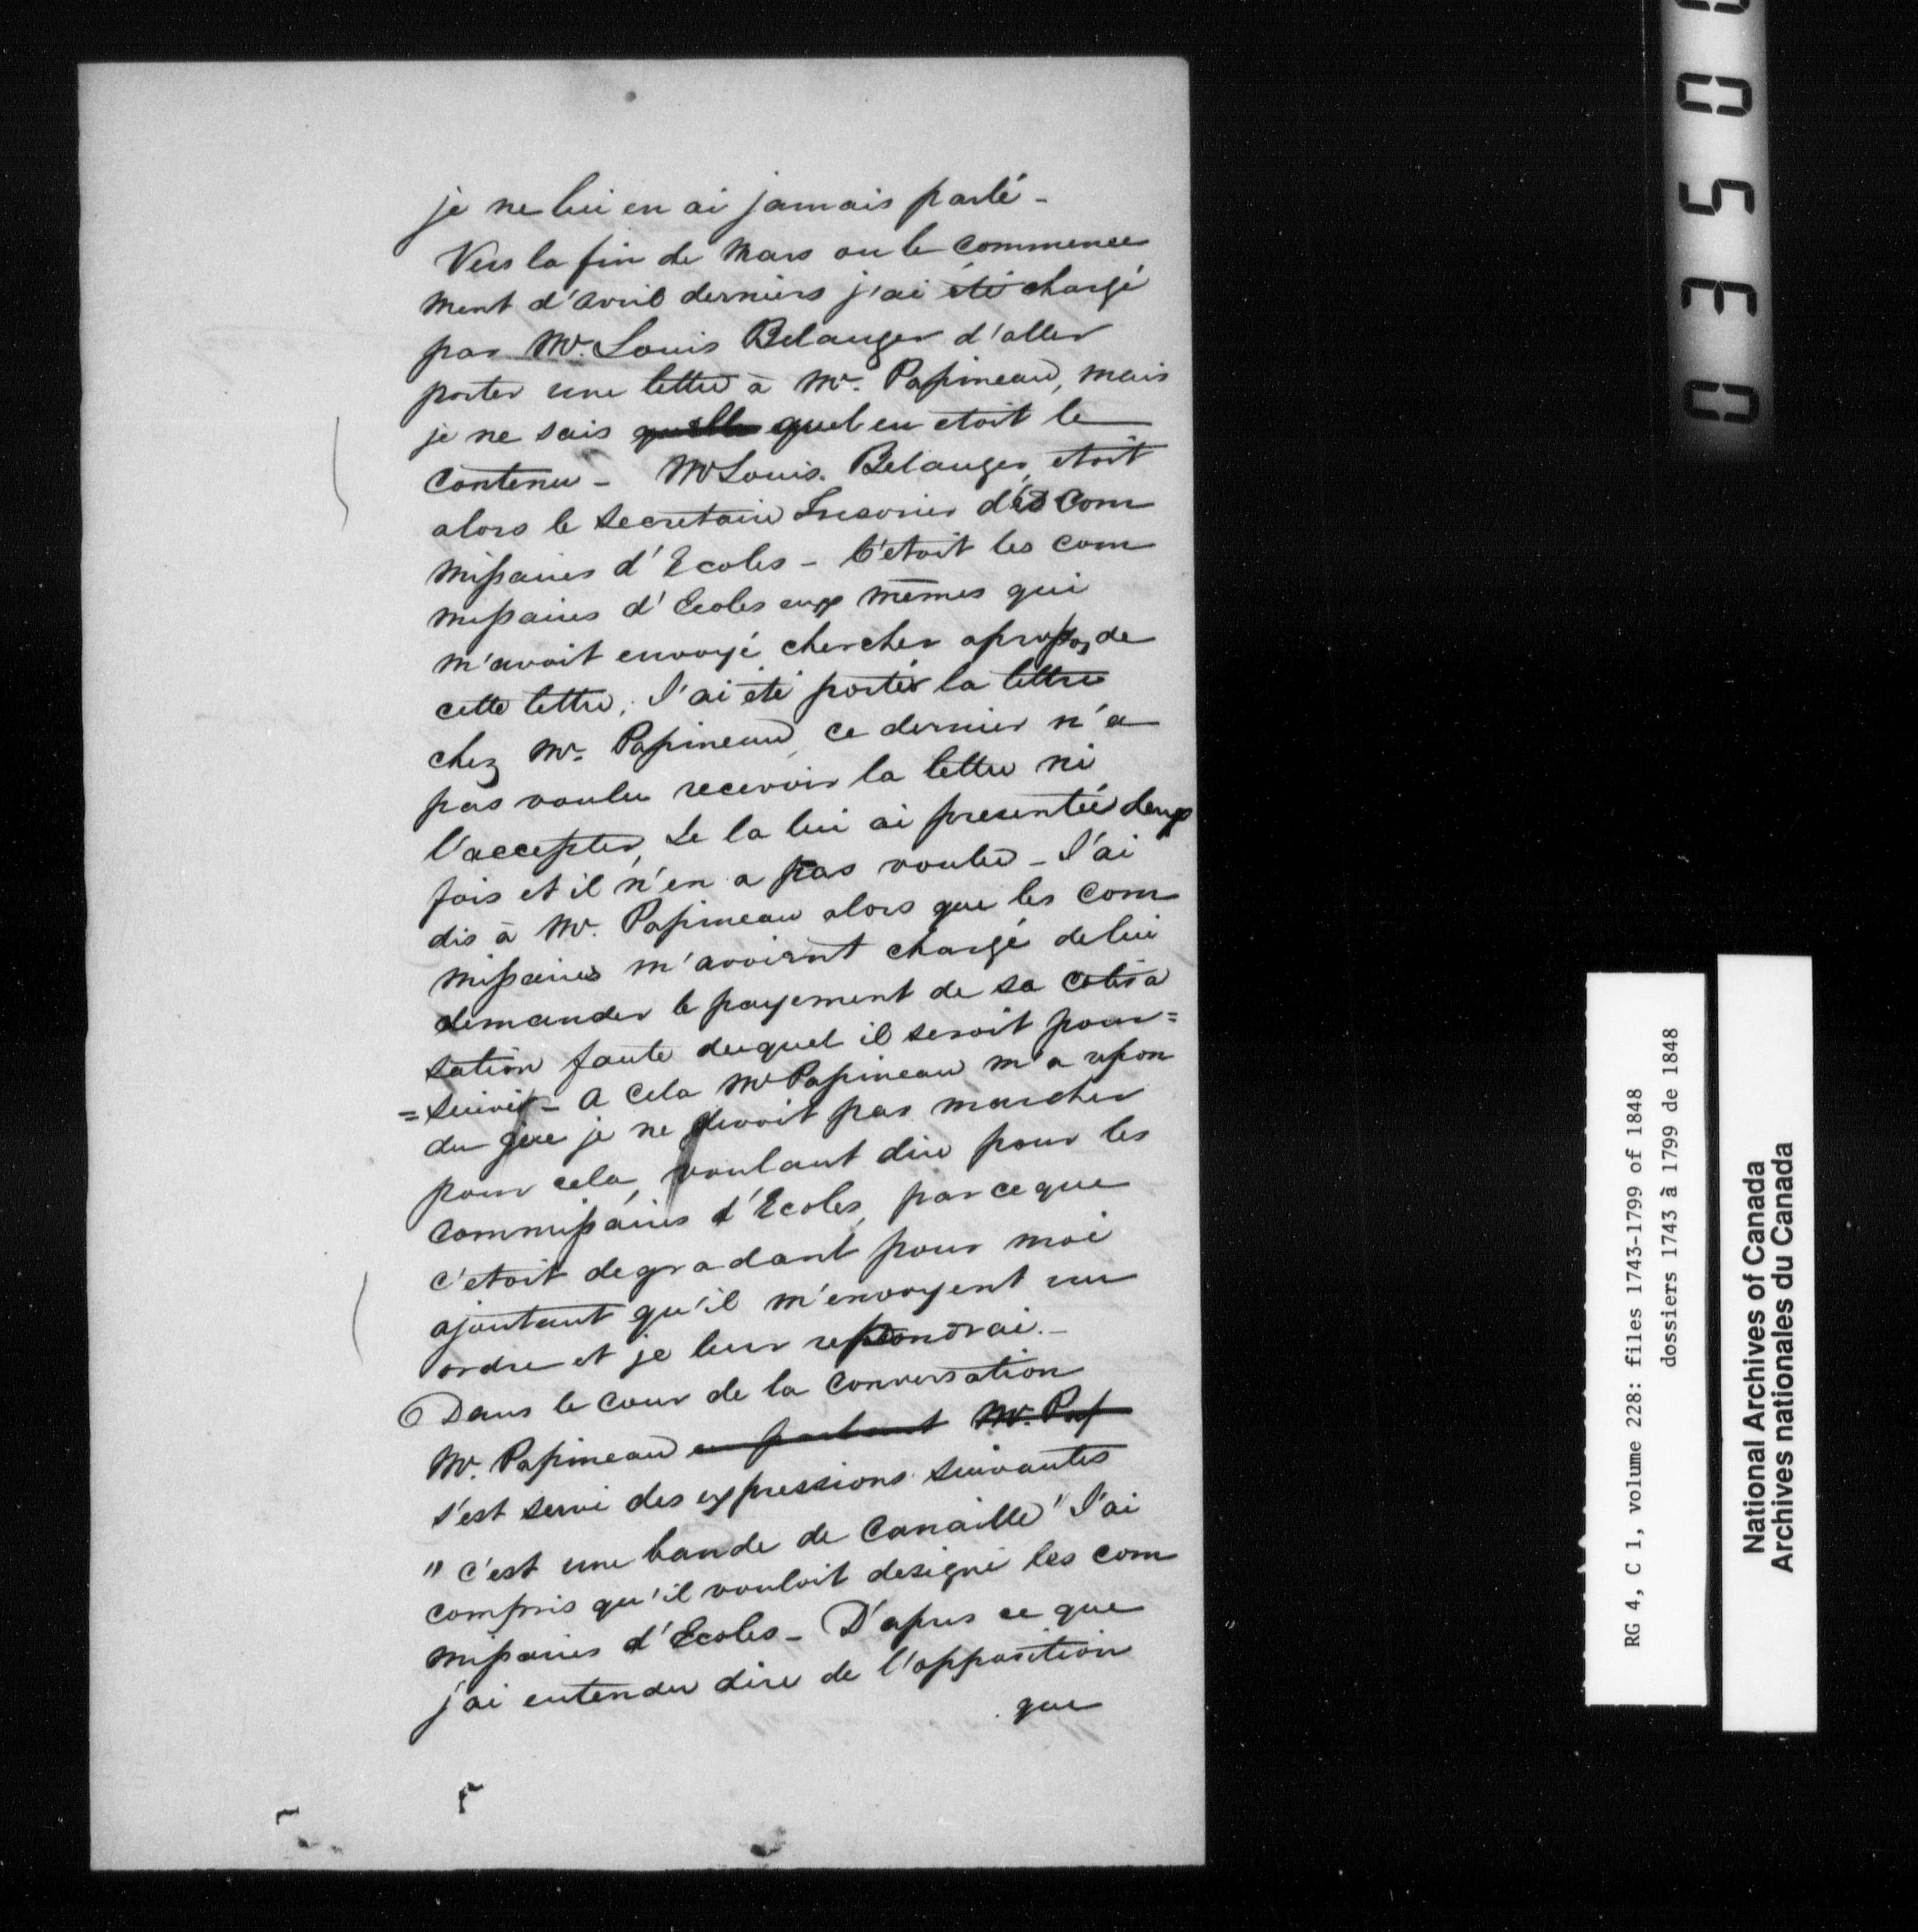 je ne lui en ai jamais parlé -
Vers la fin de Mars ou le commence
ment d'avril derniers j'ai été chargé
par Mr. Louis Belanger d'aller
porter une lettre à Mr. Papineau, mais
je ne sais quelle quel en etoit le
contenu - Mr Louis. Belanger, etoit
alors le Secretaire Tresorier des Com
missaires d'Ecoles - C'etoit les com
missaires d'Ecoles eux mêmes qui
m'avoit envoyé chercher apropos de
cette lettre, J'ai été porter la lettre
chez Mr. Papineau, ce dernier n'a
pas voulu recevoir la lettre ni
l'accepter, Je la lui ai presentée deux
fois et il n'en a pas voulu - J'ai
dis à Mr. Papineau alors que les Com
missaires m'avoient chargé de lui
demander le payement de sa cotisa
sation faute duquel il seroit pour=
=suivit - A cela Mr Papineau m'a repon
du que je ne devoit pas marcher
pour cela, voulant dire pour les
commissaires d'Ecoles, parceque
c'etoit degradant pour moi
ajoutant qu'il m'envoyent un
ordre et je leur repondrai. -
Dans le cour de la conversation
Mr. Papineau en parlant Mr. Pap
s'est servi des expressions suivantes
" c'est une bande de Canaille" J'ai
compris qu'il vouloit designé les com
missaires d'Ecoles - D'apres ce que
j'ai entendu dire de l'opposition
que
0350
RG 4, C 1, volume 228: files 1743-1799 of 1848
dossiers 1743 à 1799 de 1848
National Archives of Canada
Archives nationales du Canada